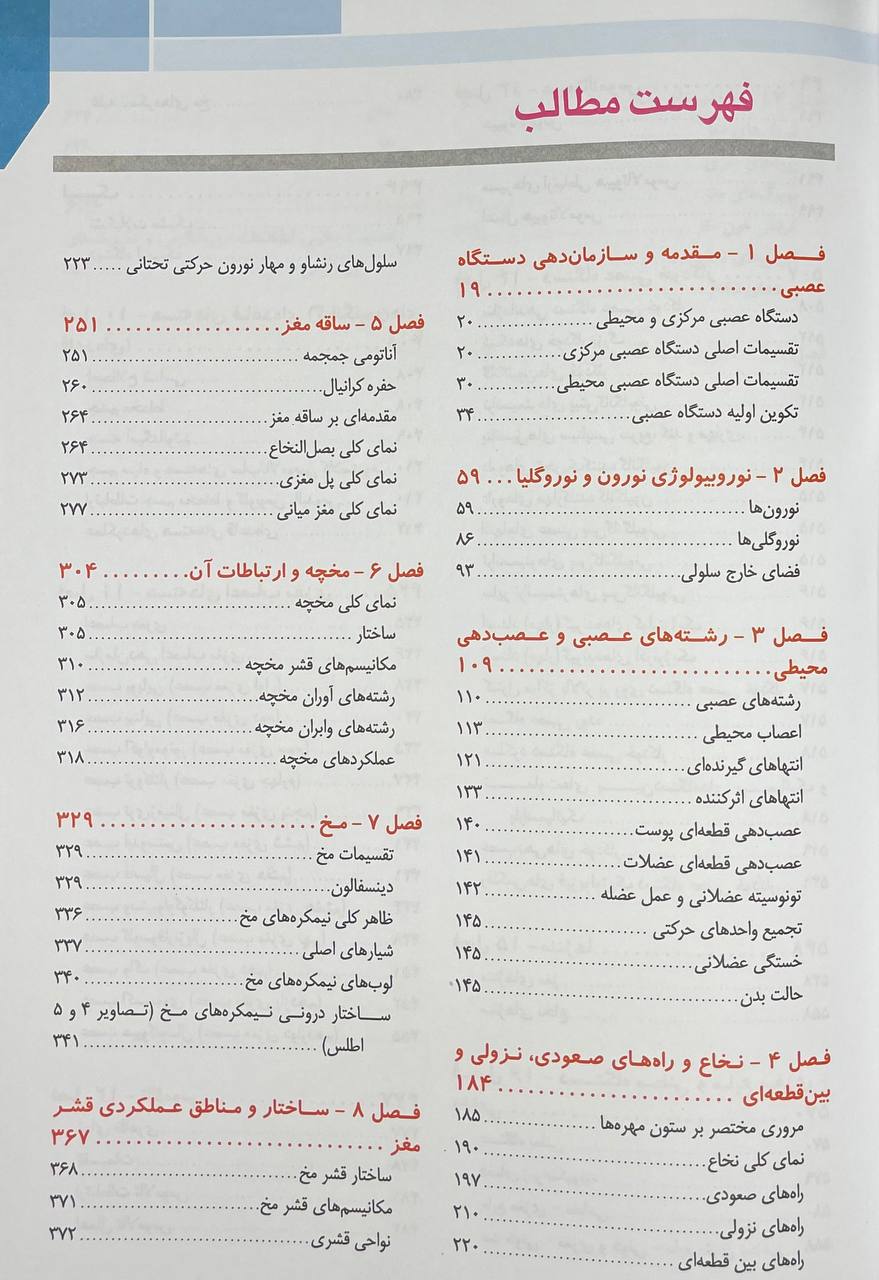 فهرست مطالب
فصل ۱ - مقدمه و سازمان‌دهی دستگاه
عصبی ............................ ۱۹
دستگاه عصبی مرکزی و محیطی ............................ ۲۰
تقسیمات اصلی دستگاه عصبی مرکزی ............................ ۲۰
تقسیمات اصلی دستگاه عصبی محیطی ............................ ۳۰
تکوین اولیه دستگاه عصبی ............................ ۳۴
فصل ۲ - نوروبیولوژی نورون و نوروگلیا ... ۵۹
نورون‌ها ............................ ۵۹
نوروگلی‌ها ............................ ۸۶
فضای خارج سلولی ............................ ۹۳
فصل ۳ - رشته‌های عصبی و عصب‌دهی
محیطی ............................ ۱۰۹
رشته‌های عصبی ............................ ۱۱۰
اعصاب محیطی ............................ ۱۱۳
انتهاهای گیرنده‌ای ............................ ۱۲۱
انتهاهای اثرکننده ............................ ۱۳۳
عصب‌دهی قطعه‌ای پوست ............................ ۱۴۰
عصب‌دهی قطعه‌ای عضلات ............................ ۱۴۱
تونوسیته عضلانی و عمل عضله ............................ ۱۴۲
تجمیع واحدهای حرکتی ............................ ۱۴۵
خستگی عضلانی ............................ ۱۴۵
حالت بدن ............................ ۱۴۵
فصل ۴ - نخاع و راه‌های صعودی، نزولی و
بین‌قطعه‌ای ............................ ۱۸۴
مروری مختصر بر ستون مهره‌ها ............................ ۱۸۵
نمای کلی نخاع ............................ ۱۹۰
راه‌های صعودی ............................ ۱۹۷
راه‌های نزولی ............................ ۲۱۰
راه‌های بین قطعه‌ای ............................ ۲۲۰
سلول‌های رنشاو و مهار نورون حرکتی تحتانی ..... ۲۲۳
فصل ۵ - ساقه مغز ............................ ۲۵۱
آناتومی جمجمه ............................ ۲۵۱
حفره کرانیال ............................ ۲۶۰
مقدمه‌ای بر ساقه مغز ............................ ۲۶۴
نمای کلی بصل‌النخاع ............................ ۲۶۴
نمای کلی پل مغزی ............................ ۲۷۳
نمای کلی مغز میانی ............................ ۲۷۷
فصل ۶ - مخچه و ارتباطات آن ......... ۳۰۴
نمای کلی مخچه ............................ ۳۰۵
ساختار ............................ ۳۰۵
مکانیسم‌های قشر مخچه ............................ ۳۱۰
رشته‌های آوران مخچه ............................ ۳۱۲
رشته‌های وابران مخچه ............................ ۳۱۶
عملکردهای مخچه ............................ ۳۱۸
فصل ۷ - مخ ............................ ۳۲۹
تقسیمات مخ ............................ ۳۲۹
دینسفالون ............................ ۳۲۹
ظاهر کلی نیمکره‌های مخ ............................ ۳۳۶
شیارهای اصلی ............................ ۳۳۷
لوب‌های نیمکره‌های مخ ............................ ۳۴۰
ساختار درونی نیمکره‌های مخ (تصاویر ۴ و ۵
اطلس) ............................ ۳۴۱
فصل ۸ - ساختار و مناطق عملکردی قشر
مغز ............................ ۳۶۷
ساختار قشر مخ ............................ ۳۶۸
مکانیسم‌های قشر مخ ............................ ۳۷۱
نواحی قشری ............................ ۳۷۲